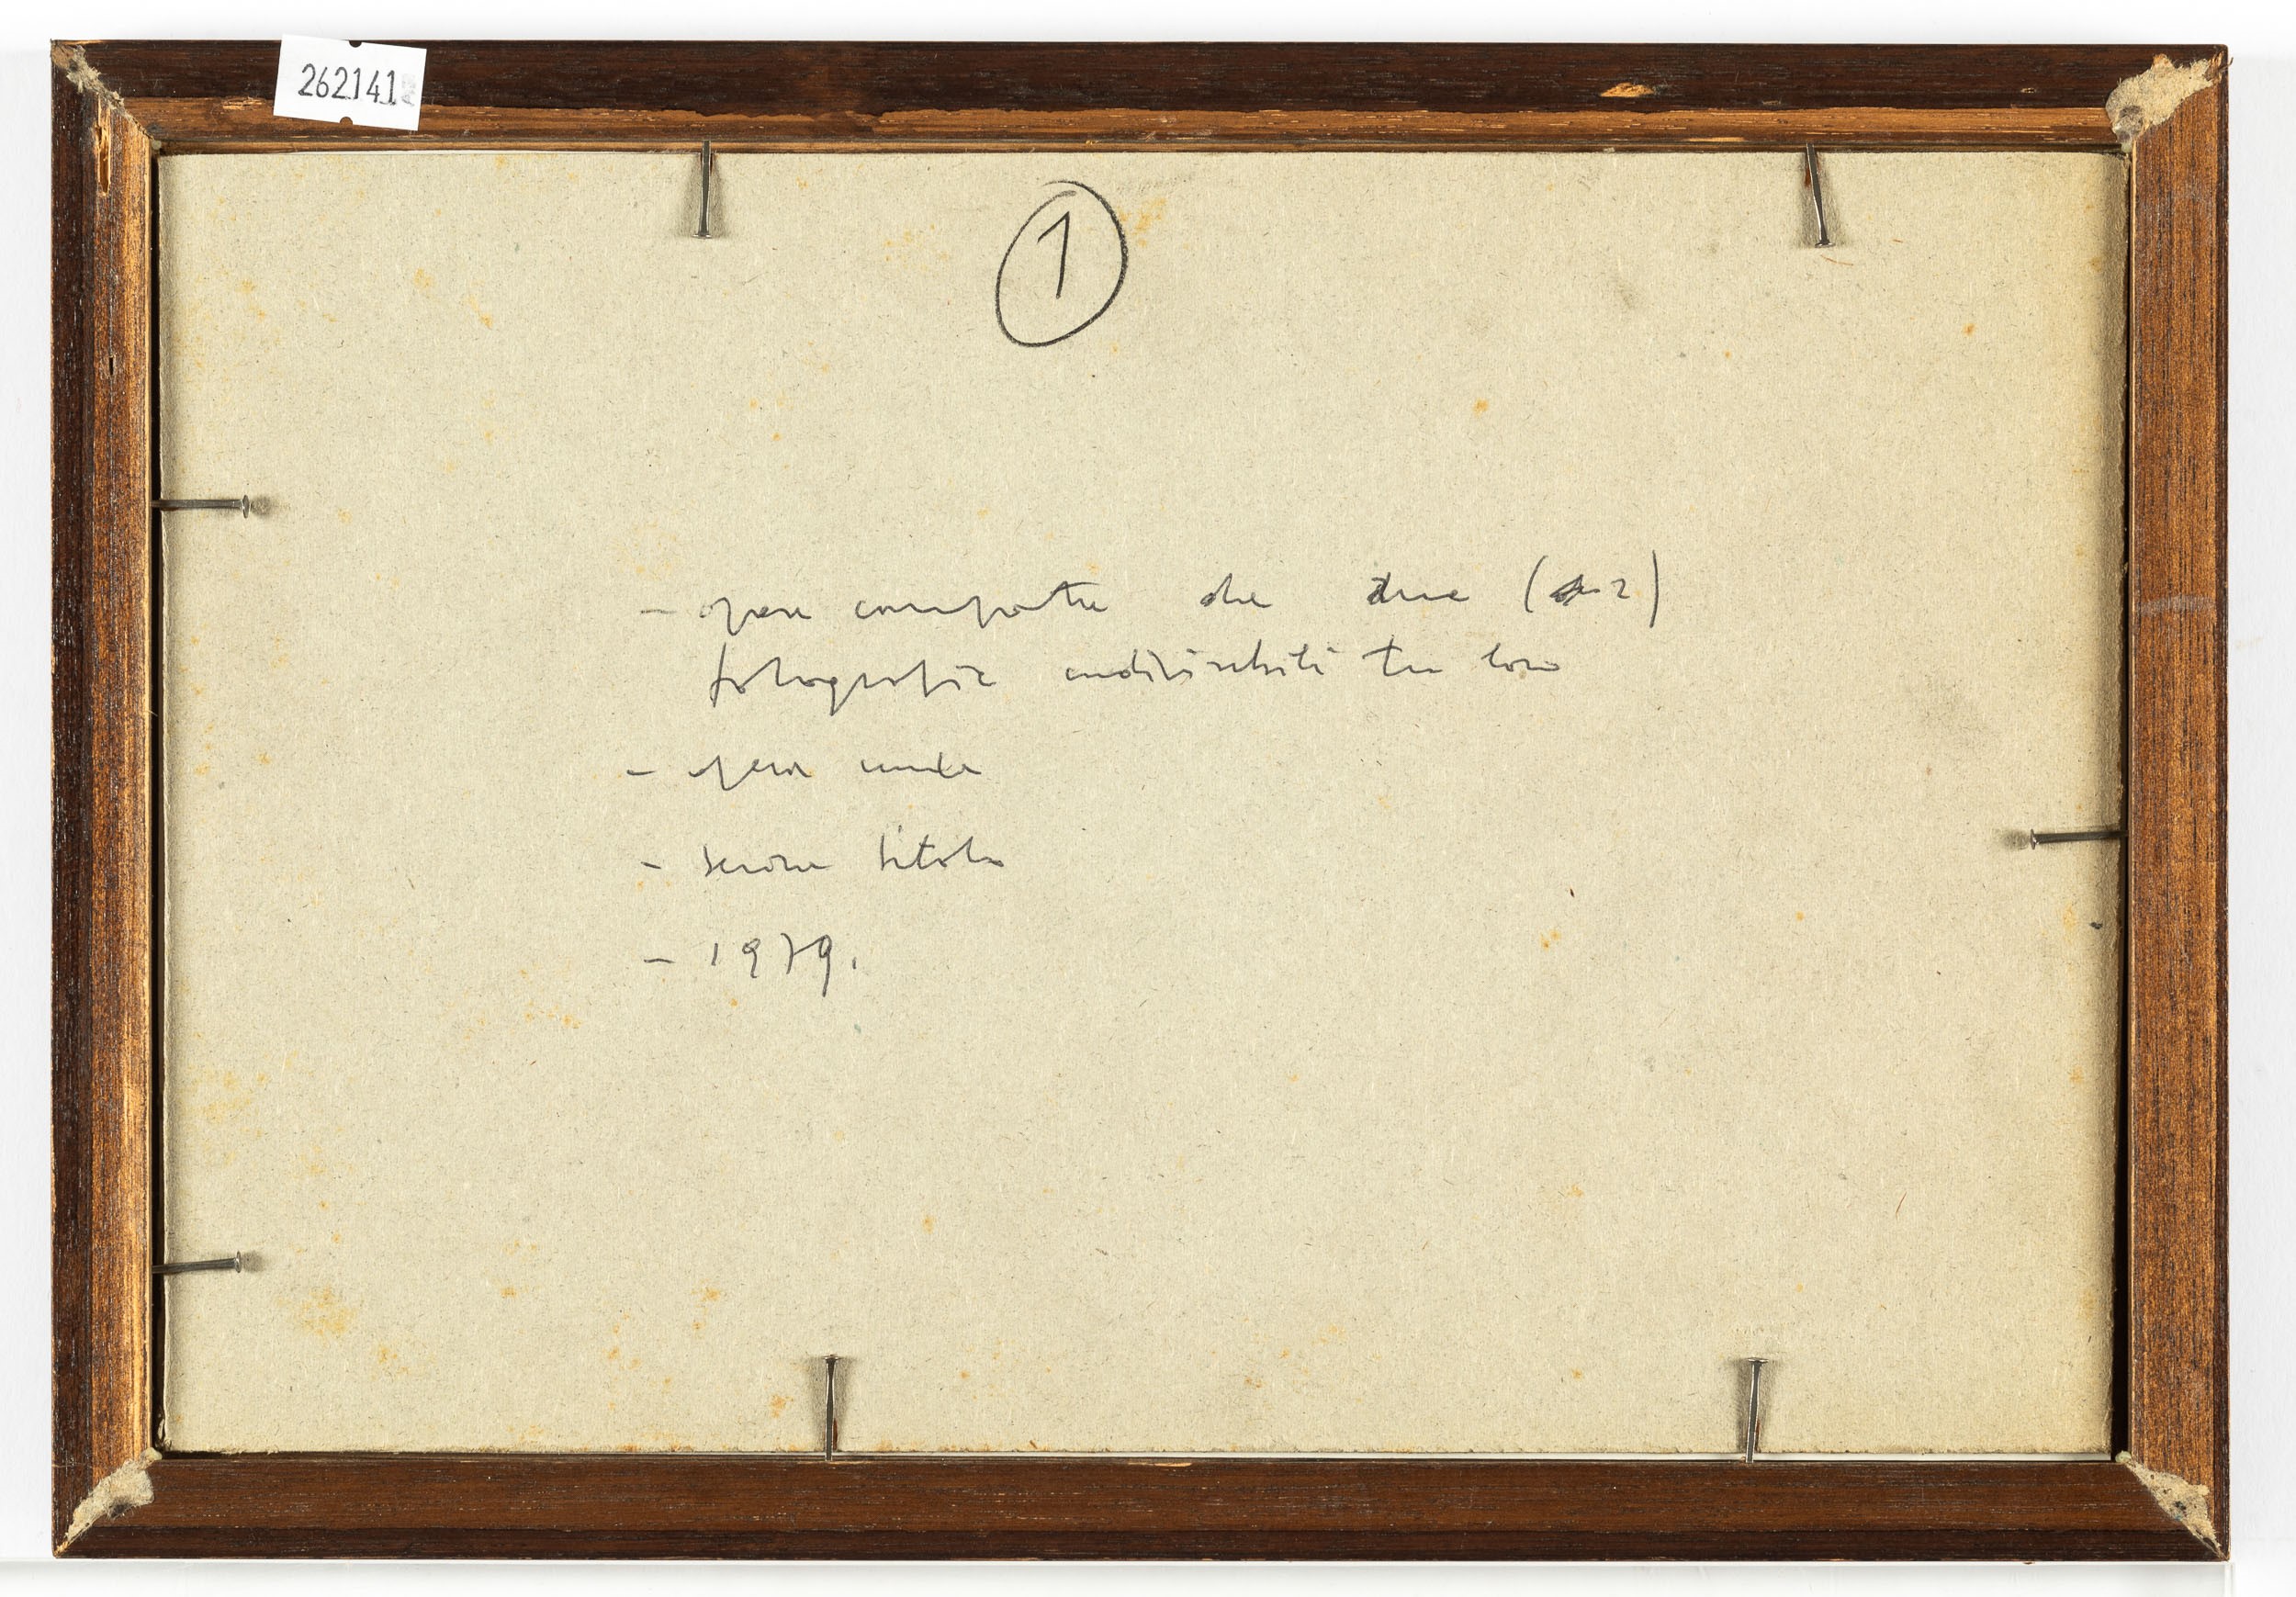 262141
1
- opera composta da due (n. 2)
fotografie indivisibili tra loro
- opera unica
- senza titolo
- 1979.